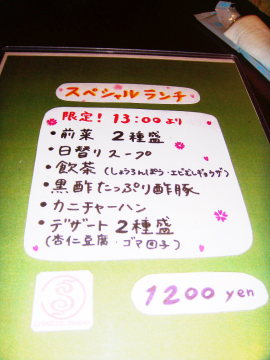 スペシャルランチ
限定! 13:00より
・前菜 2種盛
・日替りスープ
・飲茶(しょうろんぽう・エビむしギョウザ)
・黒酢たっぷり酢豚
・カニチャーハン
・デザート2種盛
(杏仁豆腐・ゴマ団子)
1200 yen